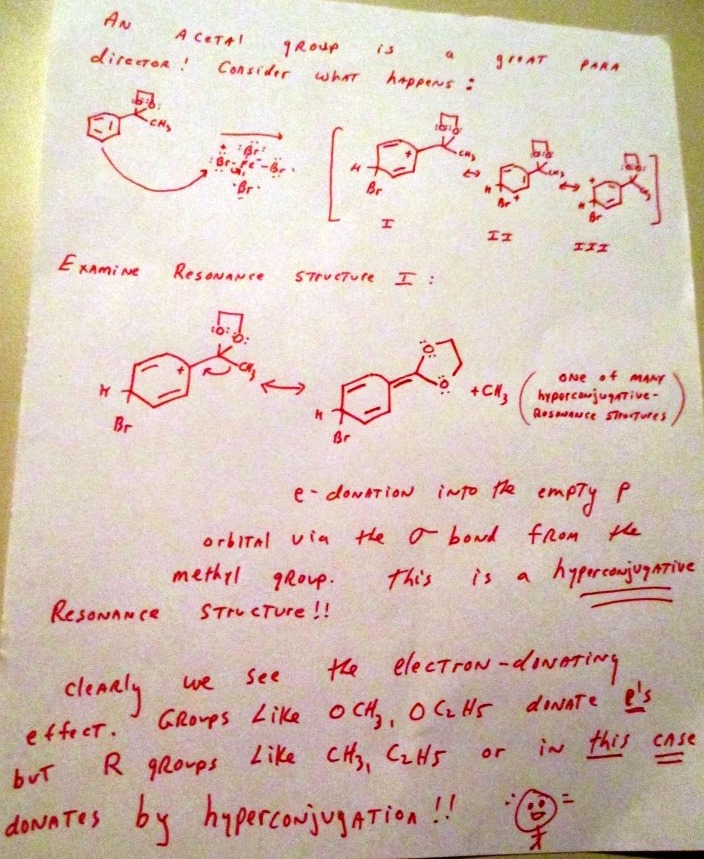 An Acetal group is a great para
director! Consider what happens:
CH3
+ :Br:
:Br-Fe-Br:
:Br:
H Br + CH3
H Br + CH3
+ H Br CH3
I II III
Examine Resonance Structure I:
:O: :O:
+ CH3
H
Br
O
O
H
Br
+ CH3
(one of many
hyperconjugative-
Resonance structures)
e- donation into the empty p
orbital via the σ bond from the
methyl group. This is a hyperconjugative
Resonance structure!!
Clearly we see the electron-donating
effect. Groups Like OCH3, OC2H5 donate e's
but R groups Like CH3, C2H5 or in this case
donates by hyperconjugation!!